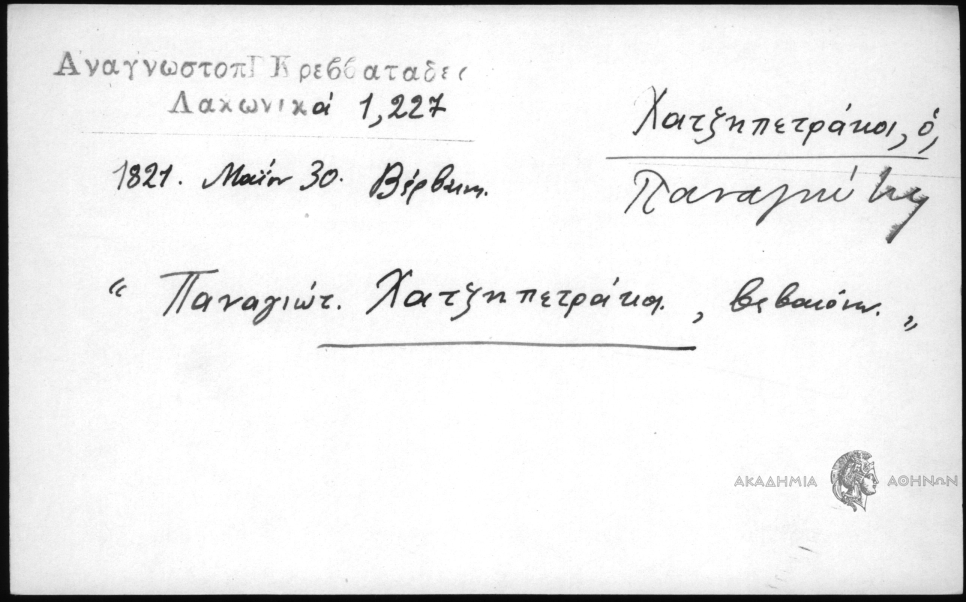 Αναγνωστοπ Γ Κρεββαταδες
Λακωνικά 1,227
Χατζηπετράκος, ὁ,
Παναγιώτης
1821. Μαΐου 30. Βέρβαινα.
" Παναγιώτ. Χατζηπετράκος. , βεβαιόνω. "
ΑΚΑΔΗΜΙΑ ΑΘΗΝΩΝ